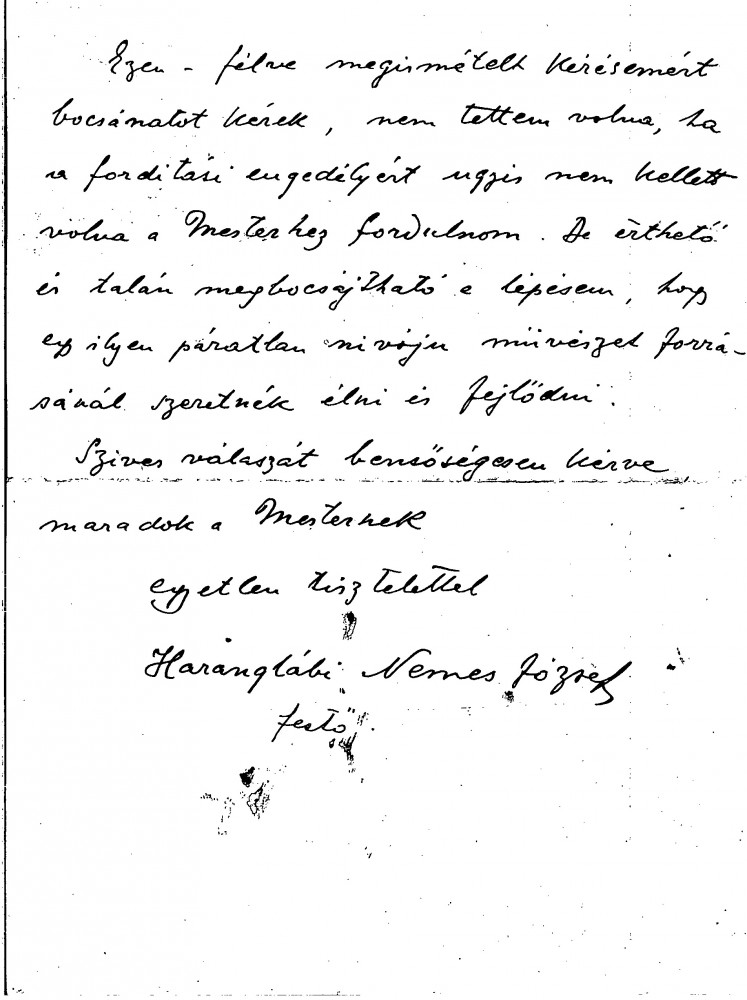 Ezen - félve megismételt kérésemért
bocsánatot kérek, nem tettem volna, ha
a forditási engedélyért ugyis nem kellett
volna a Mesterhez fordulnom. De érthető
és talán megbocsájtható e lépésem, hogy
egy ilyen páratlan nivóju művészet forrá-
sánál szeretnék élni és fejlődni.
Szives válaszát bensőségesen kérve
maradok a Mesternek
egyetlen tisztelettel
Haranglábi Nemes József
festő.